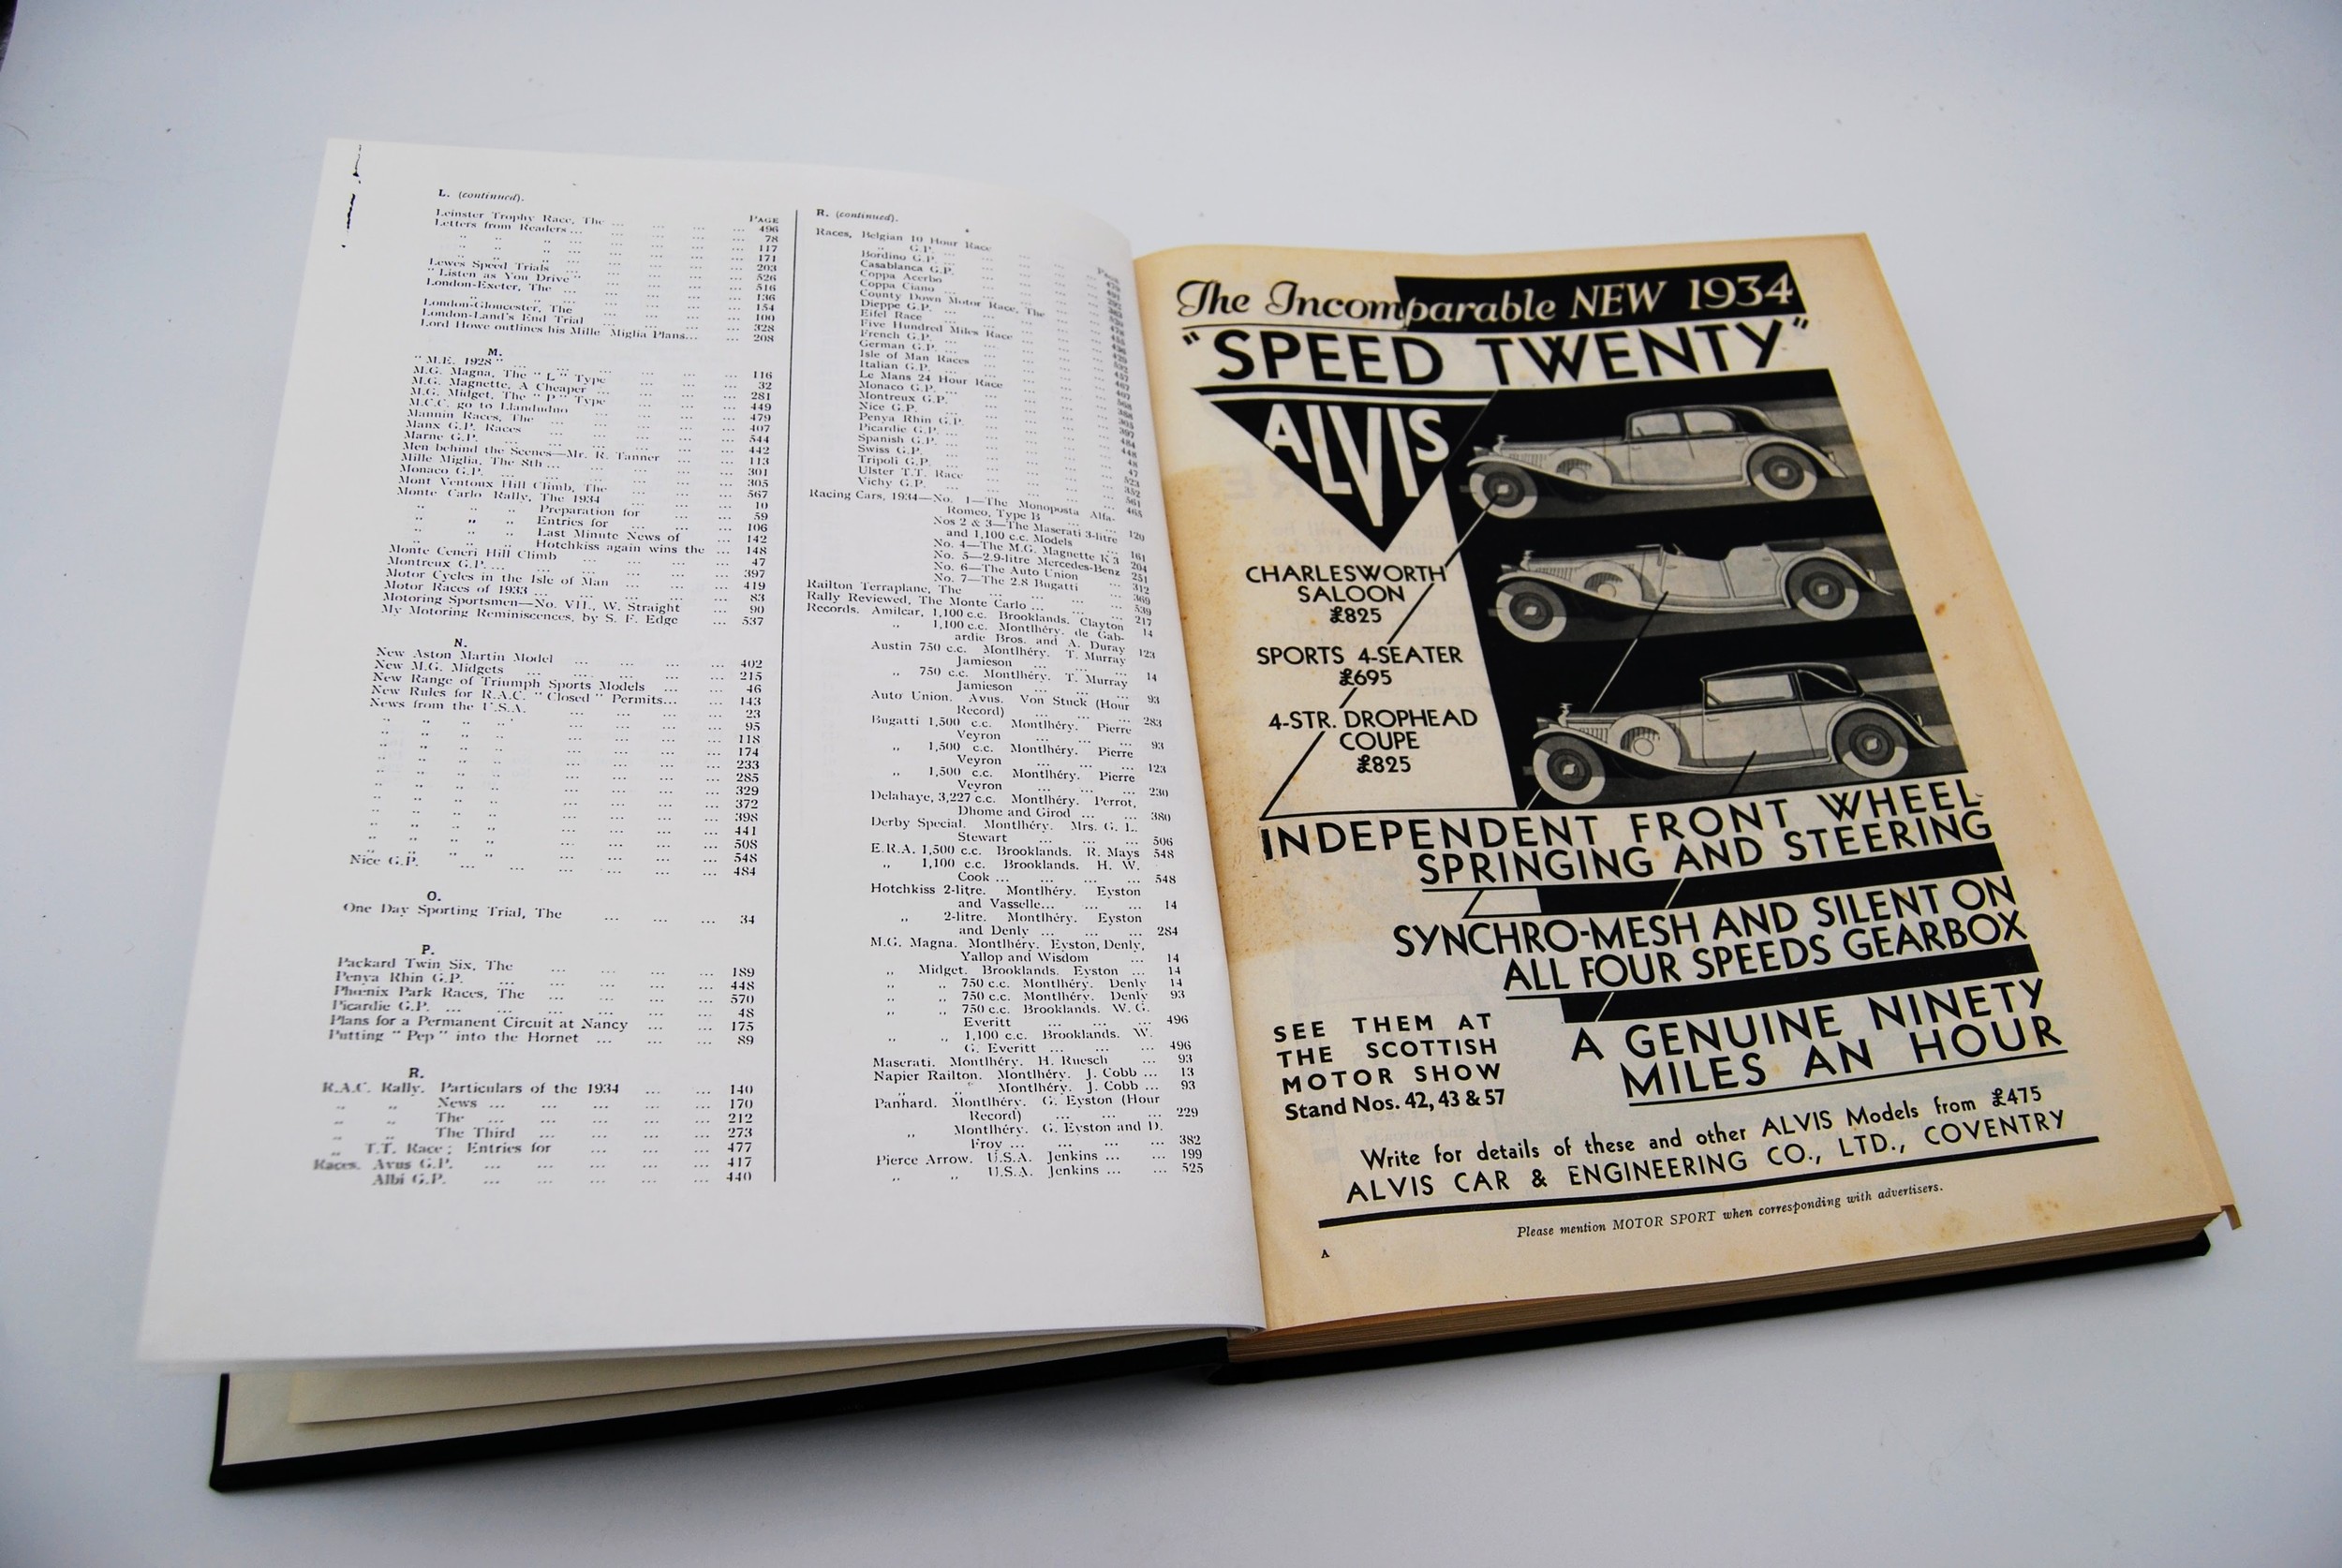 L. (continued).
PAGE
Leinster Trophy Race, The ... ... ... ... 496
Letters from Readers ... ... ... ... 78
" " " ... ... ... ... 117
" " " ... ... ... ... 171
" " " ... ... ... ... 203
Lewes Speed Trials ... ... ... ... 526
" Listen as You Drive " ... ... ... ... 516
London-Exeter, The ... ... ... ... 136
" " ... ... ... ... 154
London-Gloucester, The ... ... ... ... 100
London-Land's End Trial ... ... ... ... 328
Lord Howe outlines his Mille Miglia Plans... ... 208
M.
" M.E. 1928 " ... ... ... ... 116
M.G. Magna, The " L " Type ... ... 32
M.G. Magnette, A Cheaper ... ... ... 281
M.G. Midget, The " P " Type ... ... 449
M.C.C. go to Llandudno ... ... ... 479
Mannin Races, The ... ... ... ... 407
Manx G.P. Races ... ... ... ... 544
Marne G.P. ... ... ... ... 442
Men behind the Scenes—Mr. R. Tanner ... 113
Mille Miglia, The 8th ... ... ... ... 301
Monaco G.P. ... ... ... ... 305
Mont Ventoux Hill Climb, The ... ... 567
Monte Carlo Rally, The 1934 ... ... 10
" " " Preparation for ... 59
" " " Entries for ... ... 106
" " " Last Minute News of ... 142
" " " Hotchkiss again wins the ... 148
Monte Ceneri Hill Climb ... ... ... 47
Montreux G.P. ... ... ... ... 397
Motor Cycles in the Isle of Man ... ... 419
Motor Races of 1933 ... ... ... ... 83
Motoring Sportsmen—No. VII., W. Straight ... 90
My Motoring Reminiscences, by S. F. Edge ... 537
N.
New Aston Martin Model ... ... ... 402
New M.G. Midgets ... ... ... ... 215
New Range of Triumph Sports Models ... 46
New Rules for R.A.C. " Closed " Permits... ... 143
News from the U.S.A. ... ... ... ... 23
" " " " ... ... ... 95
" " " " ... ... ... 118
" " " " ... ... ... 174
" " " " ... ... ... 233
" " " " ... ... ... 285
" " " " ... ... ... 329
" " " " ... ... ... 372
" " " " ... ... ... 398
" " " " ... ... ... 441
" " " " ... ... ... 508
" " " " ... ... ... 548
Nice G.P. ... ... ... ... 484
O.
One Day Sporting Trial, The ... ... ... 34
P.
Packard Twin Six, The ... ... ... ... 189
Penya Rhin G.P. ... ... ... ... 448
Phœnix Park Races, The ... ... ... ... 570
Picardie G.P. ... ... ... ... 48
Plans for a Permanent Circuit at Nancy ... ... 175
Putting " Pep " into the Hornet ... ... ... 89
R.
R.A.C. Rally. Particulars of the 1934 ... ... 140
" " News ... ... ... ... 170
" " The ... ... ... ... 212
" " The Third ... ... ... ... 273
" T.T. Race ; Entries for ... ... ... 477
Races. Avus G.P. ... ... ... ... 417
Albi G.P. ... ... ... ... 440
R. (continued).
Races, Belgian 10 Hour Race
" G.P. ...
Bordino G.P. ...
Casablanca G.P.
Coppa Acerbo
Coppa Ciano
County Down Motor Race, The
Dieppe G.P.
Eifel Race
Five Hundred Miles Race
French G.P.
German G.P.
Isle of Man Races
Italian G.P.
Le Mans 24 Hour Race
Monaco G.P.
Montreux G.P.
Nice G.P.
Penya Rhin G.P.
Picardie G.P.
Spanish G.P.
Swiss G.P.
Tripoli G.P.
Ulster T.T. Race
Vichy G.P.
Racing Cars, 1934—No. 1—The Monoposta Alfa-
Romeo, Type B ... ... 120
Nos 2 & 3—The Maserati 3-litre
and 1,100 c.c. Models ... 161
No. 4—The M.G. Magnette K 3 204
No. 5—2.9-litre Mercedes-Benz 251
No. 6—The Auto Union ... 312
No. 7—The 2.8 Bugatti ... 369
Railton Terraplane, The ... ... ... 539
Rally Reviewed, The Monte Carlo ... ... 217
Records. Amilcar, 1,100 c.c. Brooklands. Clayton 14
" 1,100 c.c. Montlhéry. de Gab-
ardie Bros. and A. Duray 123
Austin 750 c.c. Montlhéry. T. Murray
Jamieson ... ... ... 14
" 750 c.c. Montlhéry. T. Murray
Jamieson ... ... ... 93
Auto Union. Avus. Von Stuck (Hour
Record) ... ... ... 283
Bugatti 1,500 c.c. Montlhéry. Pierre
Veyron ... ... ... 93
" 1,500 c.c. Montlhéry. Pierre
Veyron ... ... ... 123
" 1,500 c.c. Montlhéry. Pierre
Veyron ... ... ... 230
Delahaye, 3,227 c.c. Montlhéry. Perrot,
Dhome and Girod ... ... 380
Derby Special. Montlhéry. Mrs. G. L.
Stewart ... ... ... 506
E.R.A. 1,500 c.c. Brooklands. R. Mays 548
" 1,100 c.c. Brooklands. H. W.
Cook ... ... ... ... 548
Hotchkiss 2-litre. Montlhéry. Eyston
and Vasselle... ... ... 14
" 2-litre. Montlhéry. Eyston
and Denly ... ... ... 284
M.G. Magna. Montlhéry. Eyston, Denly,
Yallop and Wisdom ... 14
" Midget. Brooklands. Eyston ... 14
" " 750 c.c. Montlhéry. Denly 14
" " 750 c.c. Montlhéry. Denly 93
" " 750 c.c. Brooklands. W. G.
Everitt ... ... ... 496
" " 1,100 c.c. Brooklands. W.
G. Everitt ... ... ... 496
Maserati. Montlhéry. H. Ruesch ... 93
Napier Railton. Montlhéry. J. Cobb ... 13
" " Montlhéry. J. Cobb ... 93
Panhard. Montlhéry. G. Eyston (Hour
Record) ... ... ... 229
" Montlhéry. G. Eyston and D.
Froy ... ... ... ... 382
Pierce Arrow. U.S.A. Jenkins ... ... 199
" " U.S.A. Jenkins ... ... 525
The Incomparable NEW 1934
"SPEED TWENTY"
ALVIS
CHARLESWORTH
SALOON
£825
SPORTS 4-SEATER
£695
4-STR. DROPHEAD
COUPE
£825
INDEPENDENT FRONT WHEEL
SPRINGING AND STEERING
SYNCHRO-MESH AND SILENT ON
ALL FOUR SPEEDS GEARBOX
A GENUINE NINETY
MILES AN HOUR
SEE THEM AT
THE SCOTTISH
MOTOR SHOW
Stand Nos. 42, 43 & 57
Write for details of these and other ALVIS Models from £475
ALVIS CAR & ENGINEERING CO., LTD., COVENTRY
Please mention MOTOR SPORT when corresponding with advertisers.
A